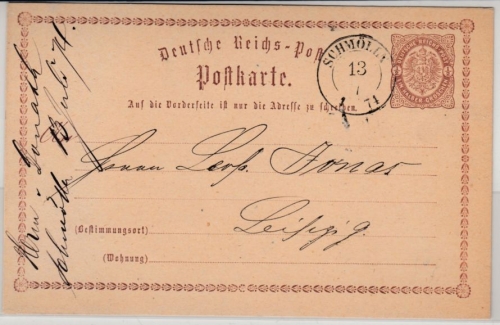 Deutsche Reichs-Post
Postkarte.
Auf die Vorderseite ist nur die Adresse zu schreiben.
SCHMÖLLN
13
7
74
Herrn Leop. Jonas
Leipzig.
(Bestimmungsort)
(Wohnung)
Schmölln 13 Juli 74.